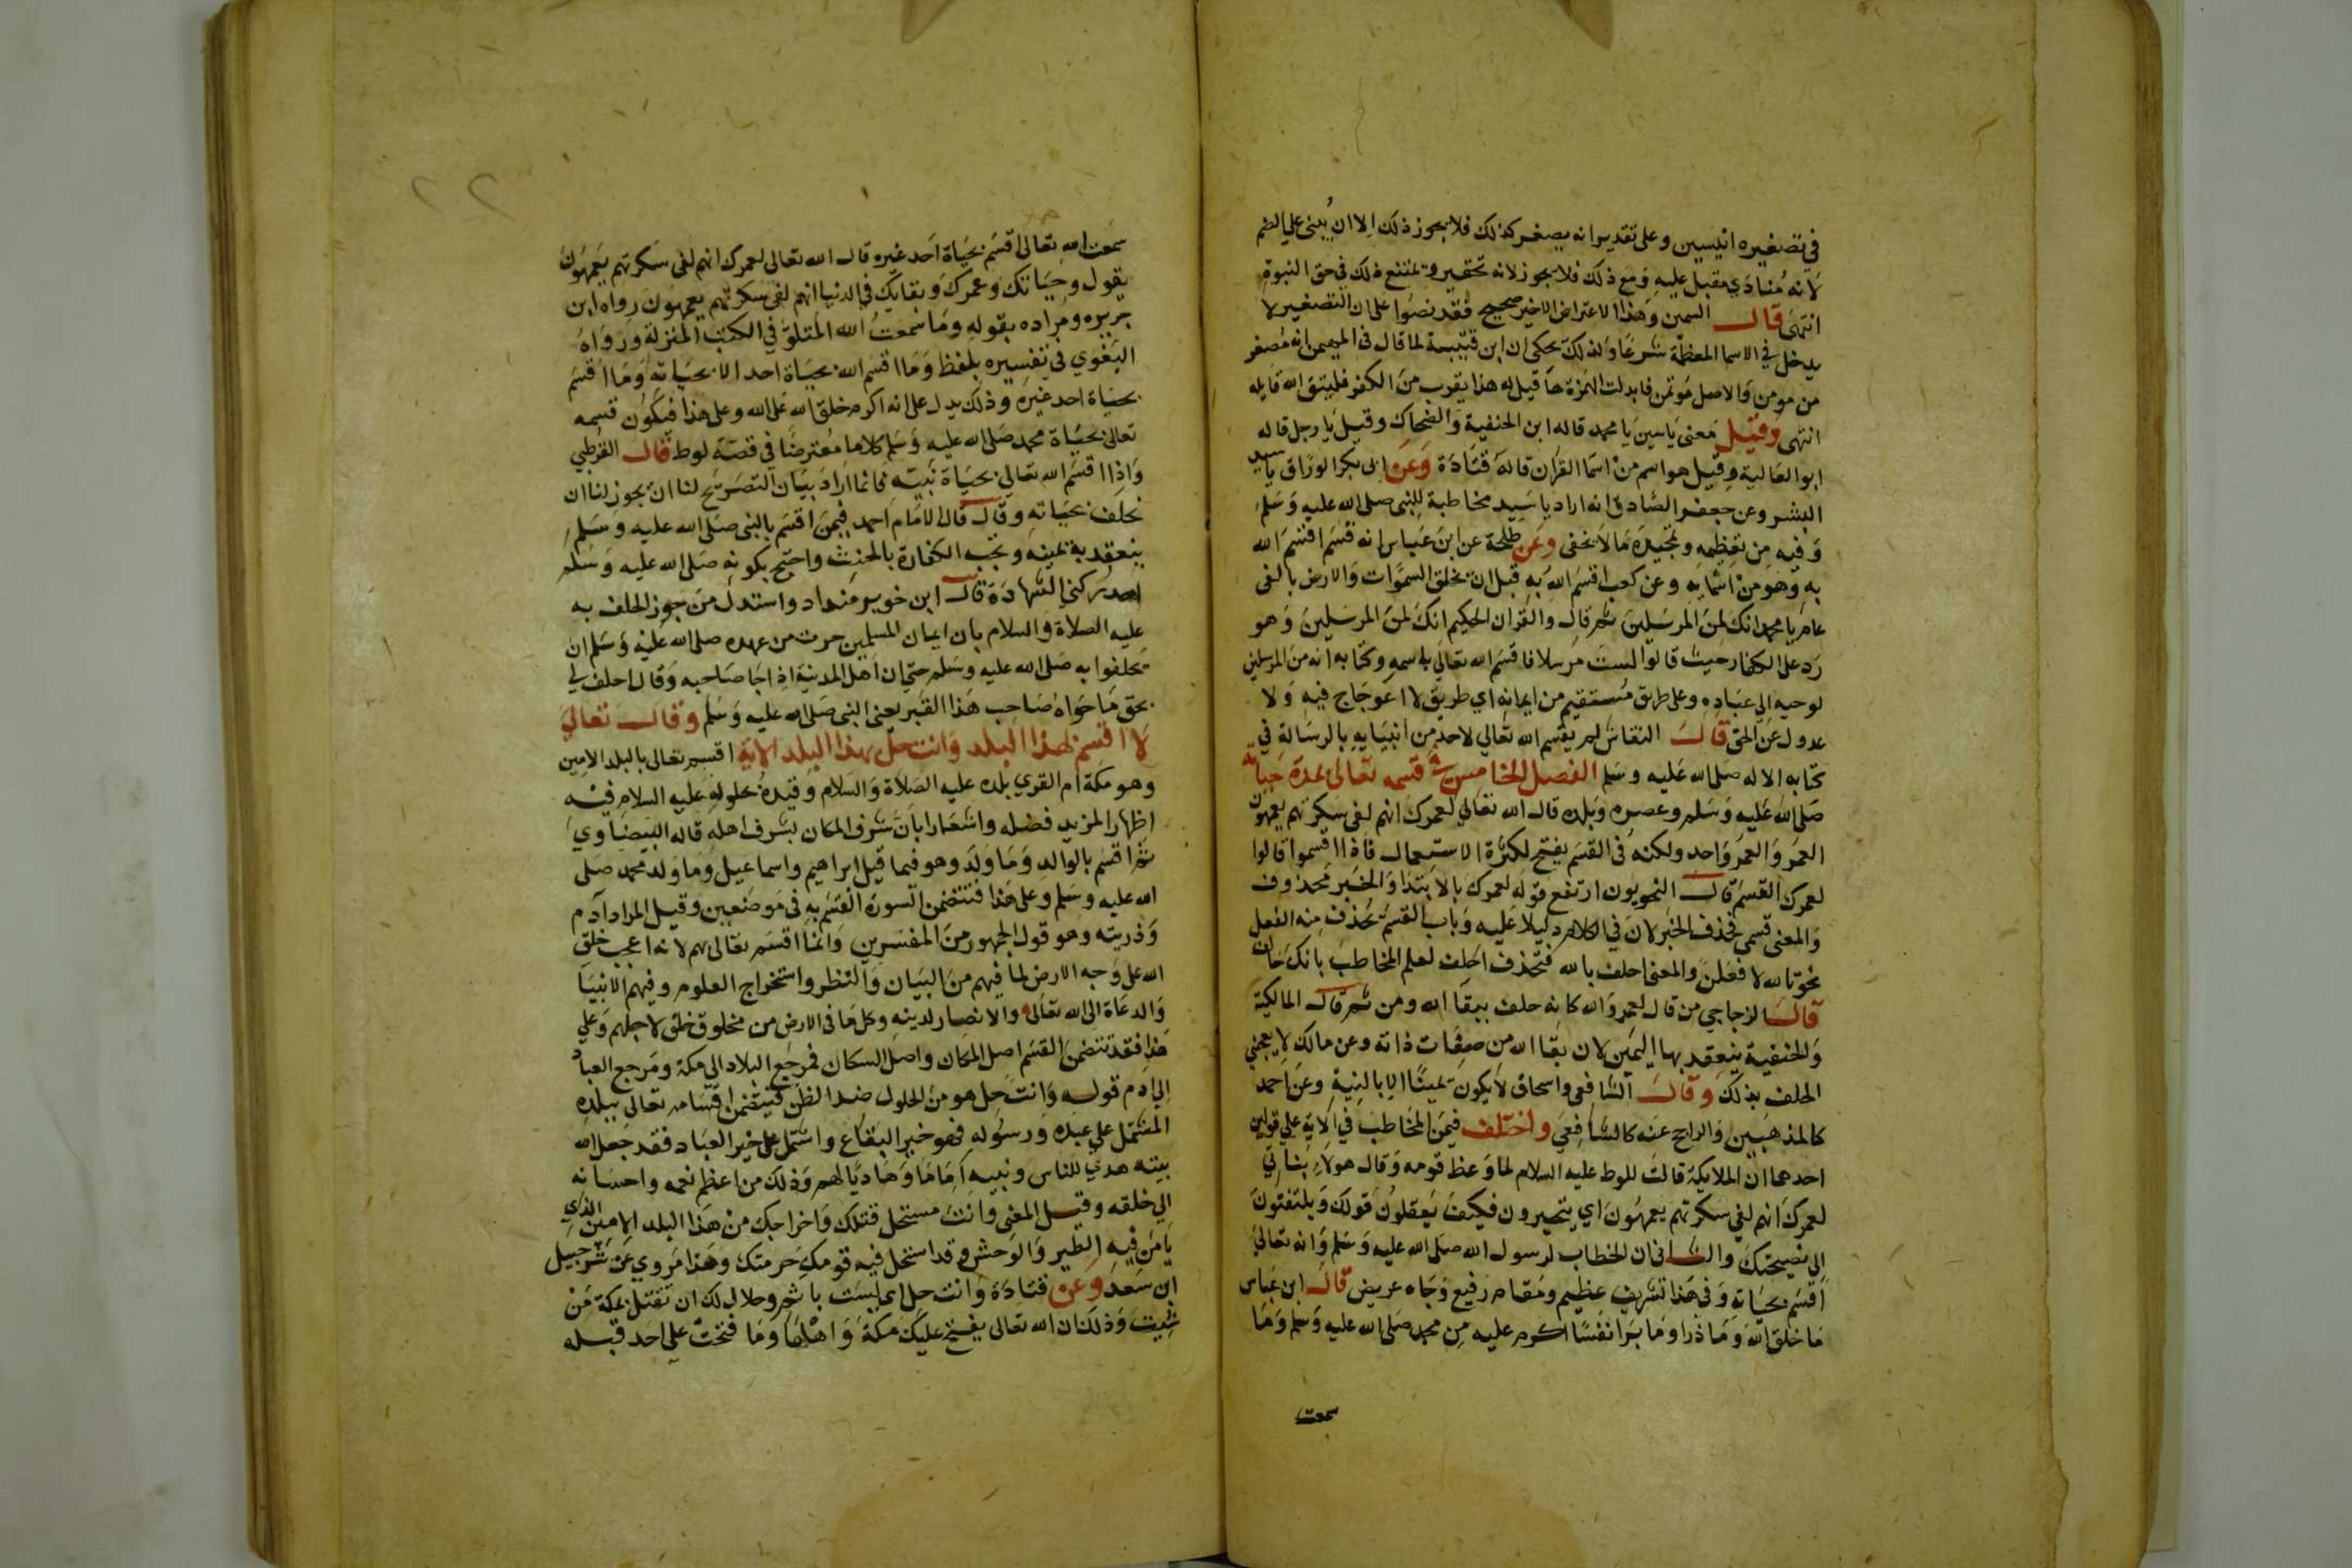 في تصغيره انيسين وعلى تقدير انه يصغر كذلك فلا يجوز ذلك الا ان يبنى علي الضم
لانه منادي مقبل عليه ومع ذلك فلا يجوز لانه تحقير ويمتنع ذلك في حق النبوة
انتهى قال السمين وهذا الاعتراض الاخير صحيح فقد نصوا على ان التصغير لا
يدخل في الاسما المعظمة شرعا ولذلك يحكى ان ابن قتيبة لما قال في المهيمن انه مصغر
من مومن والاصل مؤتمن فابدلت الهمزة ها قيل له هذا يقرب من الكفر فليتق الله قايله
انتهى وقيل معنى ياسين يا محمد قاله ابن الحنفية والضحاك وقيل يا رجل قاله
ابو العالية وقيل هو اسم من اسما القران قاله قتادة وعن ابى بكر الوراق يا سيد
البشر وعن جعفر الصادق انه اراد يا سيد مخاطبة للنبي صلى الله عليه وسلم
وفيه من تعظيمه وتمجيده ما لا يخفى وعن طلحة عن ابن عباس انه قسم اقسم الله
به وهو من اسمايه وعن كعب اقسم الله به قبل ان يخلق السموات والارض بالفي
عام يا محمد انك لمن المرسلين ثم قال والقران الحكيم انك لمن المرسلين وهو
رد على الكفار حيث قالوا لست مرسلا فاقسم الله تعالي باسمه وكتابه انه من المرسلين
لوحيه الي عباده وعلى طريق مستقيم من ايمانه اي طريق لا اعوجاج فيه ولا
عدول عن الحق قال النقاش لم يقسم الله تعالي لاحد من انبيايه بالرسالة في
كتابه الا له صلى الله عليه وسلم الفصل الخامس في قسمه تعالى بمدة حياته
صلى الله عليه وسلم وعصره وبلده قال الله تعالي لعمرك انهم لفي سكرتهم يعمهون
العمر والعمر واحد ولكنه في القسم يفتح لكثرة الاستعمال فاذا اقسموا قالوا
لعمرك القسم قال النحويون ارتفع قوله لعمرك بالابتدا والخبر محذوف
والمعنى قسمي فحذف الخبر لان في الكلام دليلا عليه وباب القسم يحذف منه الفعل
نحو تالله لافعلن والمعنى احلف بالله فتحذف احلف لعلم المخاطب بانك حالف
قال الزجاجي من قال لعمرو الله كانه حلف ببقا الله ومن ثم قال المالكية
والحنفية ينعقد بها اليمين لان بقا الله من صفات ذاته وعن مالك لا يعجبني
الحلف بذلك وقال الشافعي واسحاق لا يكون يمينا الا بالنية وعن احمد
كالمذهبين والراجح عنه كالشافعي واختلف فيمن المخاطب في الاية علي قولين
احدهما ان الملايكة قالت للوط عليه السلام لما وعظ قومه وقال هولاء بناتي
لعمرك انهم لفي سكرتهم يعمهون اي يتحيرون فكيف يعقلون قولك ويلتفتون
الى نصيحتك والثاني ان الخطاب لرسول الله صلى الله عليه وسلم وانه تعالي
اقسم بحياته وفي هذا تشريف عظيم ومقام رفيع وجاه عريض قال ابن عباس
ما خلق الله وما ذرا وما برا نفسا اكرم عليه من محمد صلى الله عليه وسلم وما
سمعت
سمعت الله تعالى اقسم بحياة احد غيره قال الله تعالى لعمرك انهم لفي سكرتهم يعمهون
يقول وحياتك وعمرك وبقايك في الدنيا انهم لفي سكرتهم يعمهون رواه ابن
جريره ومراده بقوله وما سمعت الله المتلو في الكتب المنزلة ورواه
البغوي في تفسيره بلفظ وما اقسم الله بحياة احد الا بحياته وما اقسم
بحياة احد غيره وذلك يدل على انه اكرم خلق الله على الله وعلى هذا فيكون قسمه
تعالى بحياة محمد صلى الله عليه وسلم كلاما معترضا في قصة لوط قال القرطبي
واذا اقسم الله تعالي بحياة نبيه فانما اراد بيان التصريح لنا ان يجوز لنا ان
نحلف بحياته وقال قال الامام احمد فيمن اقسم بالنبي صلى الله عليه وسلم
ينعقد به يمينه وتجب الكفارة بالحنث واحتج بكونه صلى الله عليه وسلم
احد ركني الشهادة قال ابن خويز منداد واستدل من جوز الحلف به
عليه الصلاة والسلام بان ايمان المسلمين جرت من عهده صلى الله عليه وسلم ان
تحلفوا به صلى الله عليه وسلم حتي ان اهل المدينة اذا جا صاحبه وقال احلف لي
بحق ما حواه صاحب هذا القبر يعني النبي صلى الله عليه وسلم وقال تعالي
لا اقسم بهذا البلد وانت حل بهذا البلد الاية اقسم تعالى بالبلد الامين
وهو مكة ام القري بلده عليه الصلاة والسلام وقيده بحلوله عليه السلام فيه
اظهارا لمزيد فضله واشعارا بان شرف المكان بشرف اهله قاله البيضاوي
ثم اقسم بالوالد وما ولد وهو فيما قيل ابراهيم واسماعيل وما ولد محمد صلى
الله عليه وسلم وعلى هذا فتتضمن السورة القسم به في موضعين وقيل المراد آدم
وذريته وهو قول الجمهور من المفسرين وانما اقسم تعالى بهم لانه اعجب خلق
الله على وجه الارض لما فيهم من البيان والنظر واستخراج العلوم وفيهم الانبيا
والدعاة الى الله تعالى والانصار لدينه وكل ما في الارض من مخلوق خلق لاجلهم وعلي
هذا فقد تتضمن القسم اصل المكان واصل السكان فمرجع البلاد الى مكة ومرجع العباد
الي ادم قوله وانت حل هو من الحلول ضد الظعن فيتضمن اقسامه تعالى ببلده
المشتمل علي عبده ورسوله فهو خير البقاع واشتمل على خير العباد فقد جعل الله
بيته هدي للناس ونبيه اماما وهاديا لهم وذلك من اعظم نعمه واحسانه
الي خلقه وقيل المعنى وانت مستحل قتلك واخراجك من هذا البلد الامين الذي
يامن فيه الطير والوحش وقد استحل فيه قومك حرمتك وهذا مروي عن شرحبيل
ابن سعد وعن قتادة وانت حل اي لست باثم وحلال لك ان تقتل بمكة من
شيت وذلك ان الله تعالى يفتح عليك مكة واهلها وما فتحت علي احد قبله